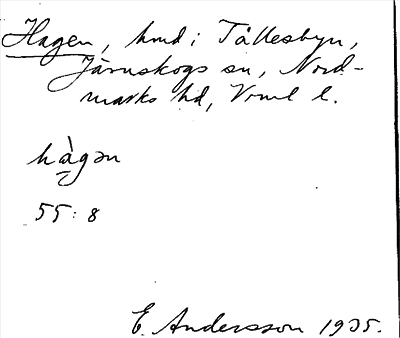 Hagen, hmd i Tållesbyn,
Järnskogs sn, Nord-
marks hd, Vrml l.
hàgən
55:8
E. Andersson 1935.